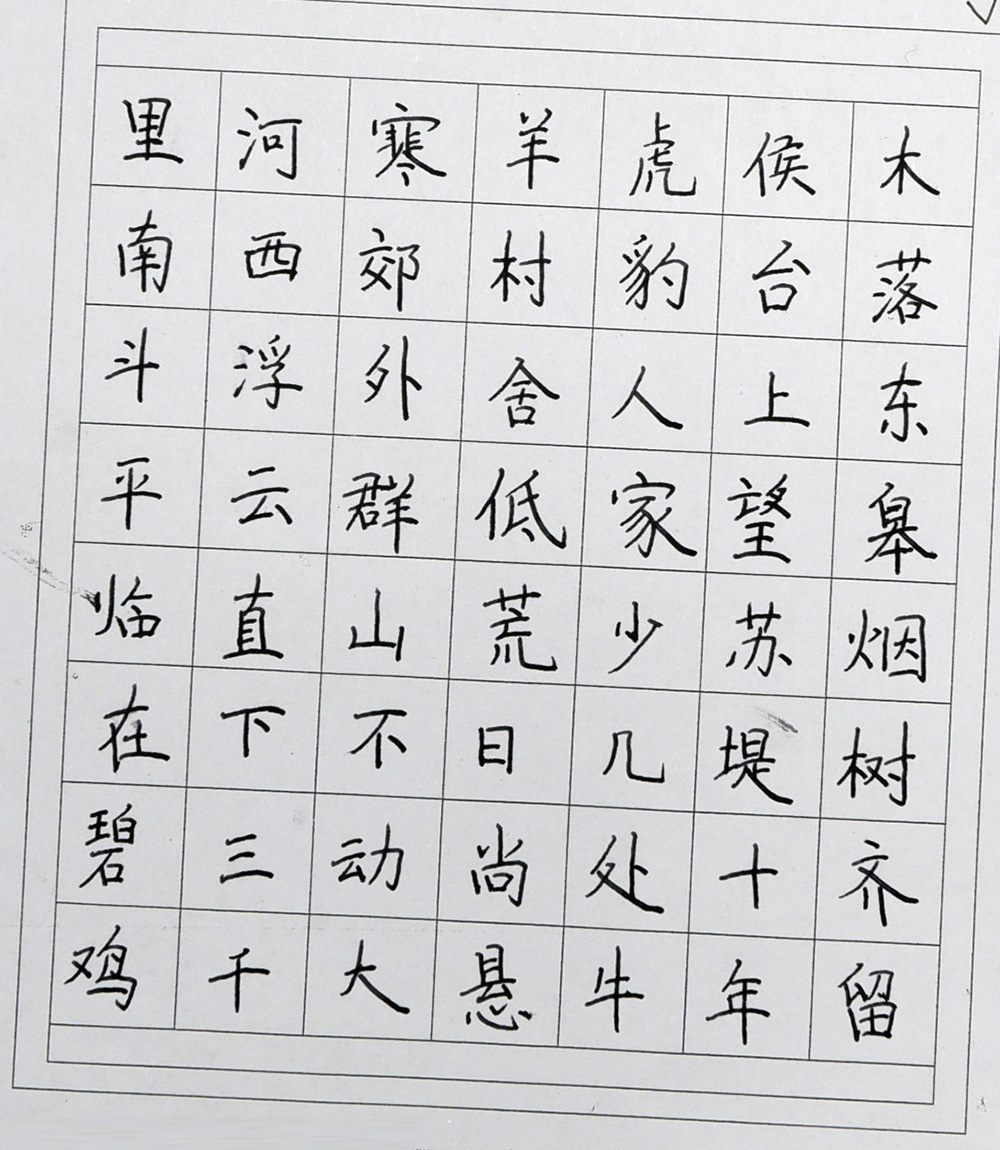 木落东皋烟树齐留
侯台上望苏堤十年
虎豹人家少几处牛
羊村舍低荒日尚悬
寒郊外群山不动大
河西浮云直下三千
里南斗平临在碧鸡